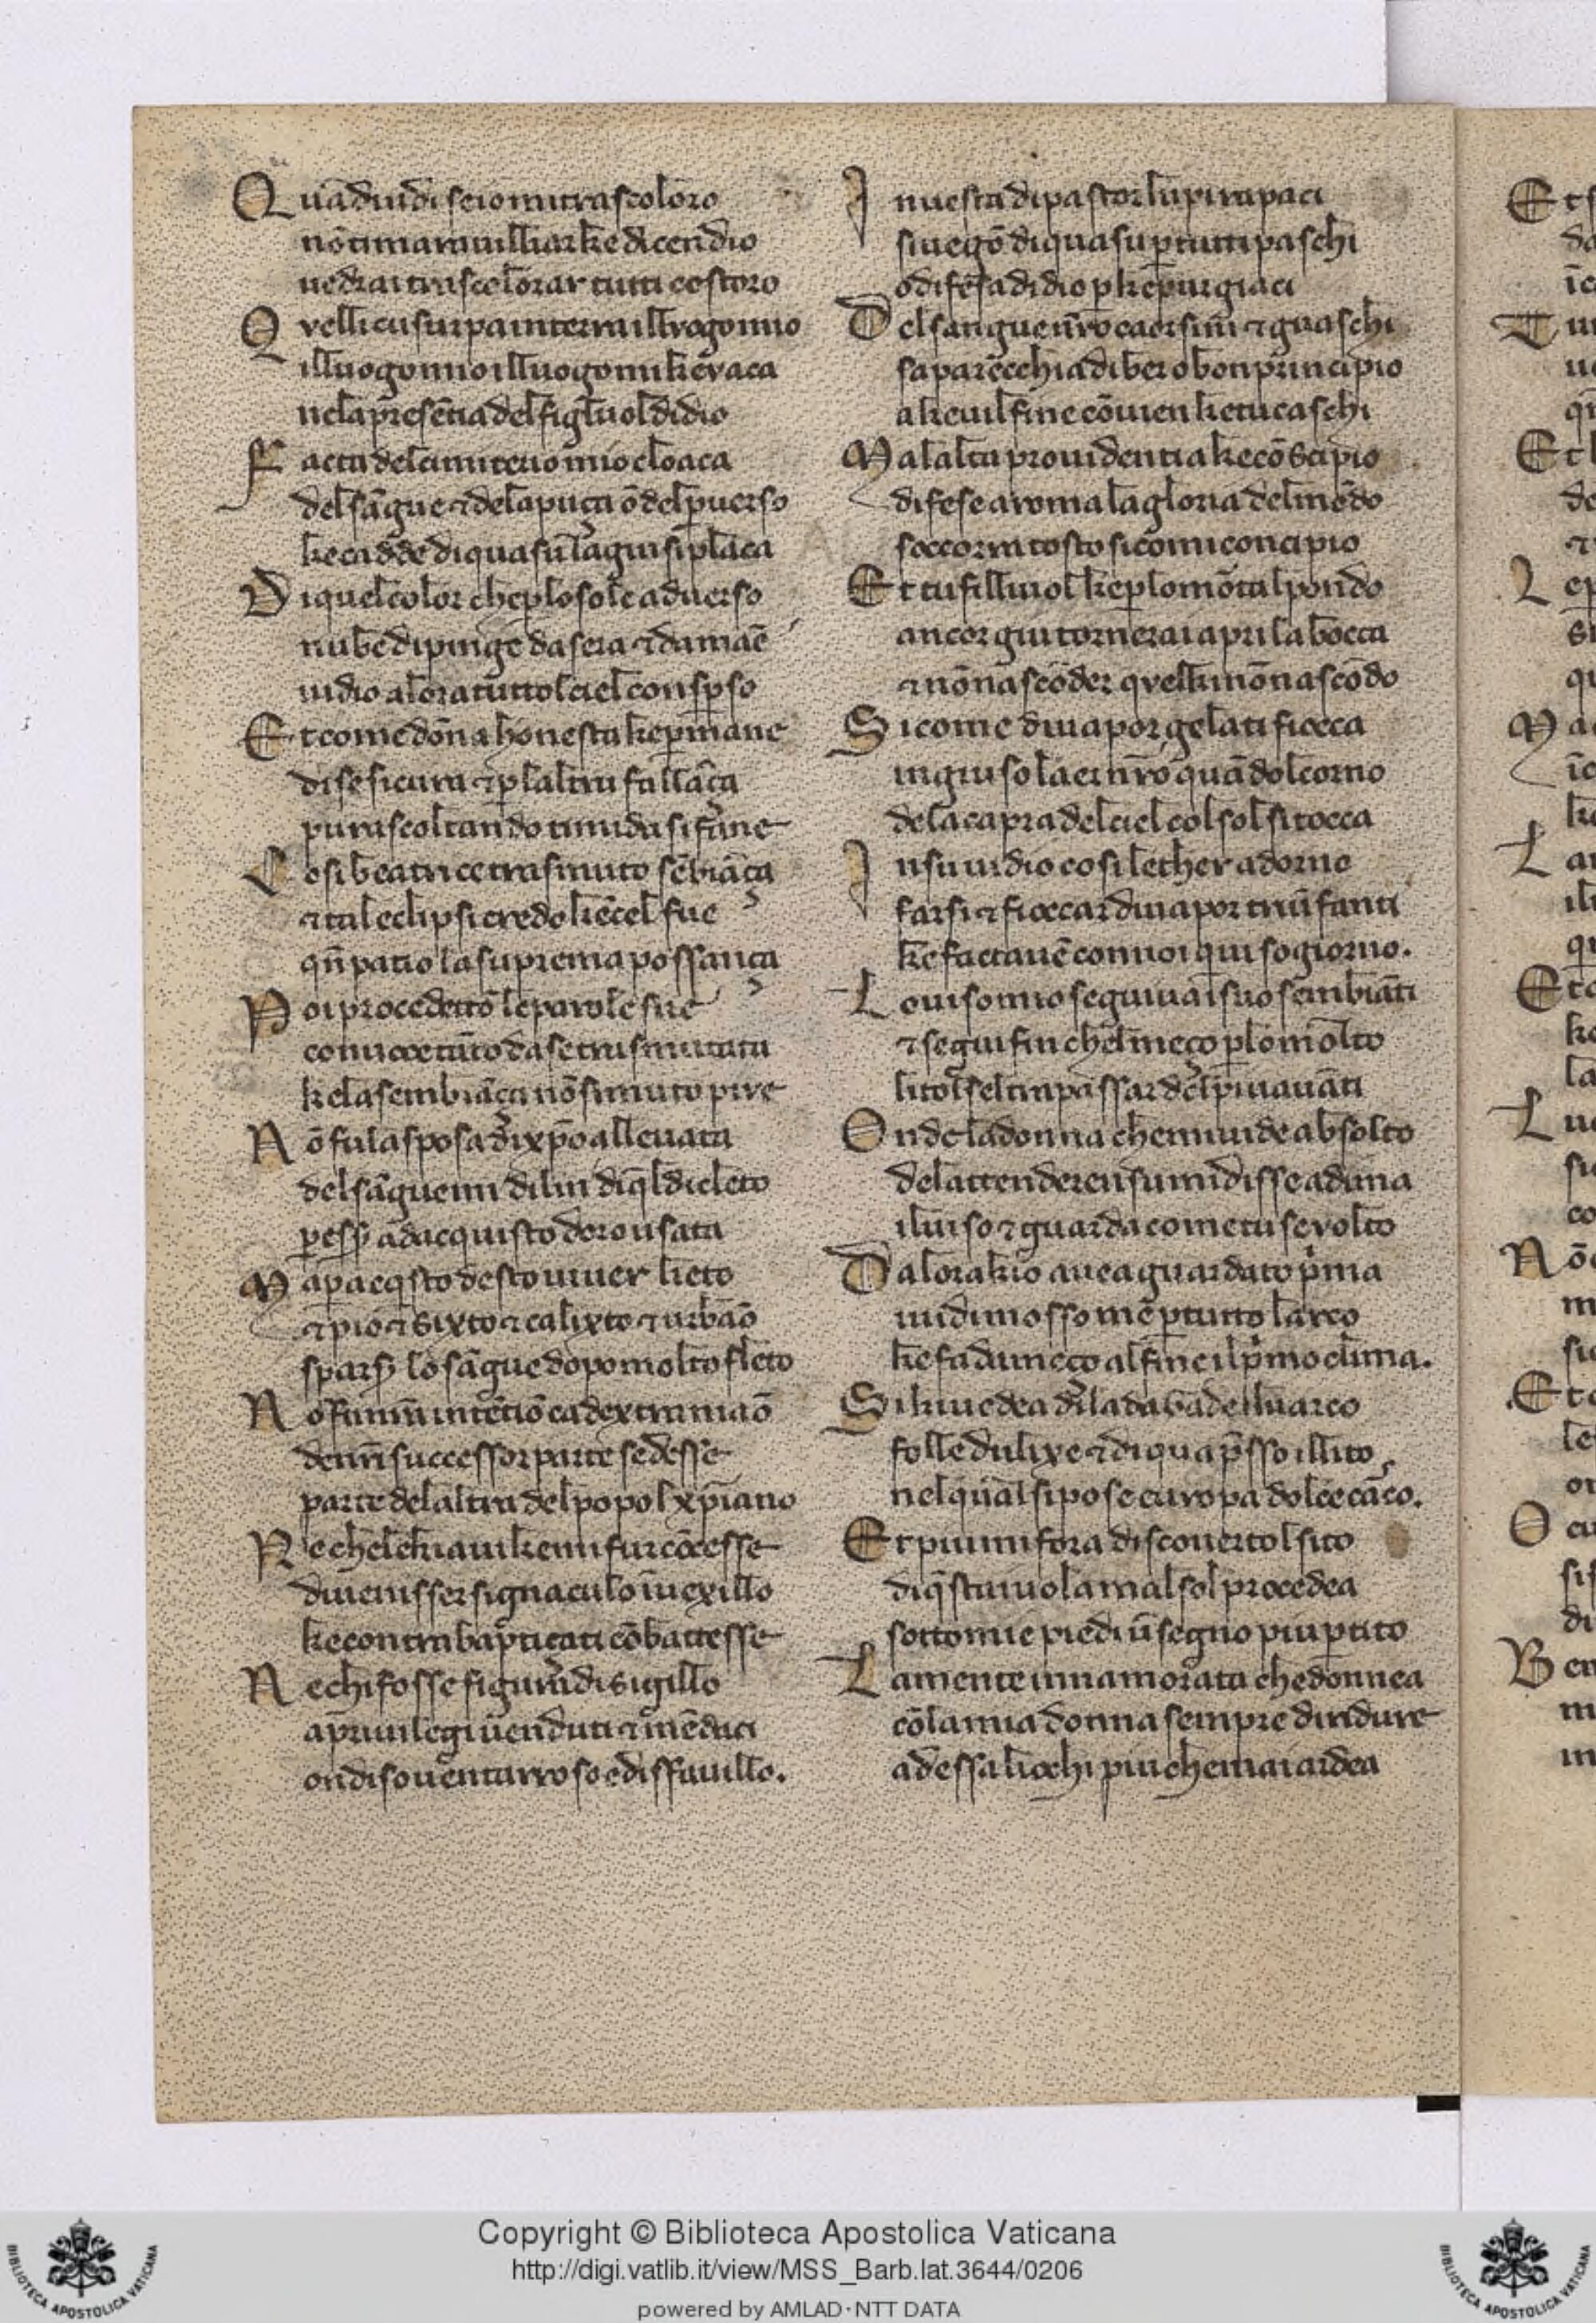 Quādiudi se io mi trascoloro
nō ti marauilliar ke dicendio
uedrai trascolorar tutti costoro
Q velli cusurpa in terra il logo mio
illuogo mio illuogo mi kevaca
nela presētia del figluol didio
Facta del cimiterio mio cloaca
del sāgue ⁊ dela puça ōdel puerso
ke cadde di qua su lagiu si placa
Di quel color che p lo sole aduerso
nube dipinge da sera ⁊ da maē
uidio alora tuttol ciel consperso
Et come dōna honesta ke pmane
di se sicura ⁊ p laltrui fallāça
pur ascoltando timida si fane
Cosi beatrice trasmuto sēbiāça
⁊ tal eclipsi credo kēcel fue
qn̄ patio la suprema possança
Poi procedetto le parole sue
con uoce tāto da se trasmutata
ke la sembiāça nō si muto piue
Nō fu la sposa di xp̄o alleuata
del sāgue mi di lin di ql di cleto
p essere ad acquisto doro usata
Ma p aeqsto desto uiuer lieto
⁊ pio ⁊ sixto ⁊ calixto ⁊ urbāo
sparser lo sāgue dopo molto fleto
Nō fu nr̄a intētiō ca dextra maō
de nr̄i successor parte sedesse
parte delaltra del popol xp̄iano
Ne che le chiaui ke mi fur cōcesse
diuenisser signaculo ī uexillo
ke contra baptiçati cōbattesse
Ne chi fosse figura di sigillo
a priuilegi uenduti ⁊ mēdaci
ondi souente arroso e disfauillo.
In uesta di pastor lupi rapaci
si uegō di qua su p tutti paschi
o difesa di dio p ke pur giaci
Del sangue nr̄o caorsini ⁊ guaschi
saparecchia di bere o bon principio
a ke uil fine cōuien ke tu caschi
Ma lalta prouidentia ke cō scipio
difese a roma la gloria del mōdo
soccorra tosto si comi concipio
Et tu filluiol ke p lo mōtal pondo
ancor giu tornerai apri la bocca
⁊ nō nascōder qvelki nō nascōdo
Si come di uapor gelati fiocca
in giuso laer nr̄o quādol corno
dela capra del ciel col sol si tocca
In su uidio cosi lether adorne
farsi ⁊ fioccar di uapor triūfanti
ke facta uē con noi qui sogiorno.
Lo uiso mio seguiua i suo sembiāti
⁊ segui fin chel meço p lo molto
li tolsel trapassar del piu auāti
Onde la donna che mi uide absolto
del attendere in su mi disse adima
il uiso ⁊ guarda come tu se volto
Da lora kio auea guardato pma
uidi mosso me p tutto larco
ke fa dal meço al fine il pmo clima.
Si kiuedea di la da gade il uarco
folle dulixe ⁊ di qua psso il lito
nel qual si pose europa dolce cāco.
Et piu mi fora discouertol sito
di qsta iuola mal sol procedea
sotto mie piedi ū segno piu ptito
La mente innamorata che donnea
cō la mia donna sempre diridure
ad essa li occhi piu che mai ardea
Copyright © Biblioteca Apostolica Vaticana
http://digi.vatlib.it/view/MSS_Barb.lat.3644/0206
powered by AMLAD·NTT DATA
BIBLIOTECA APOSTOLICA VATICANA
BIBLIOTECA APOSTOLICA VATICANA